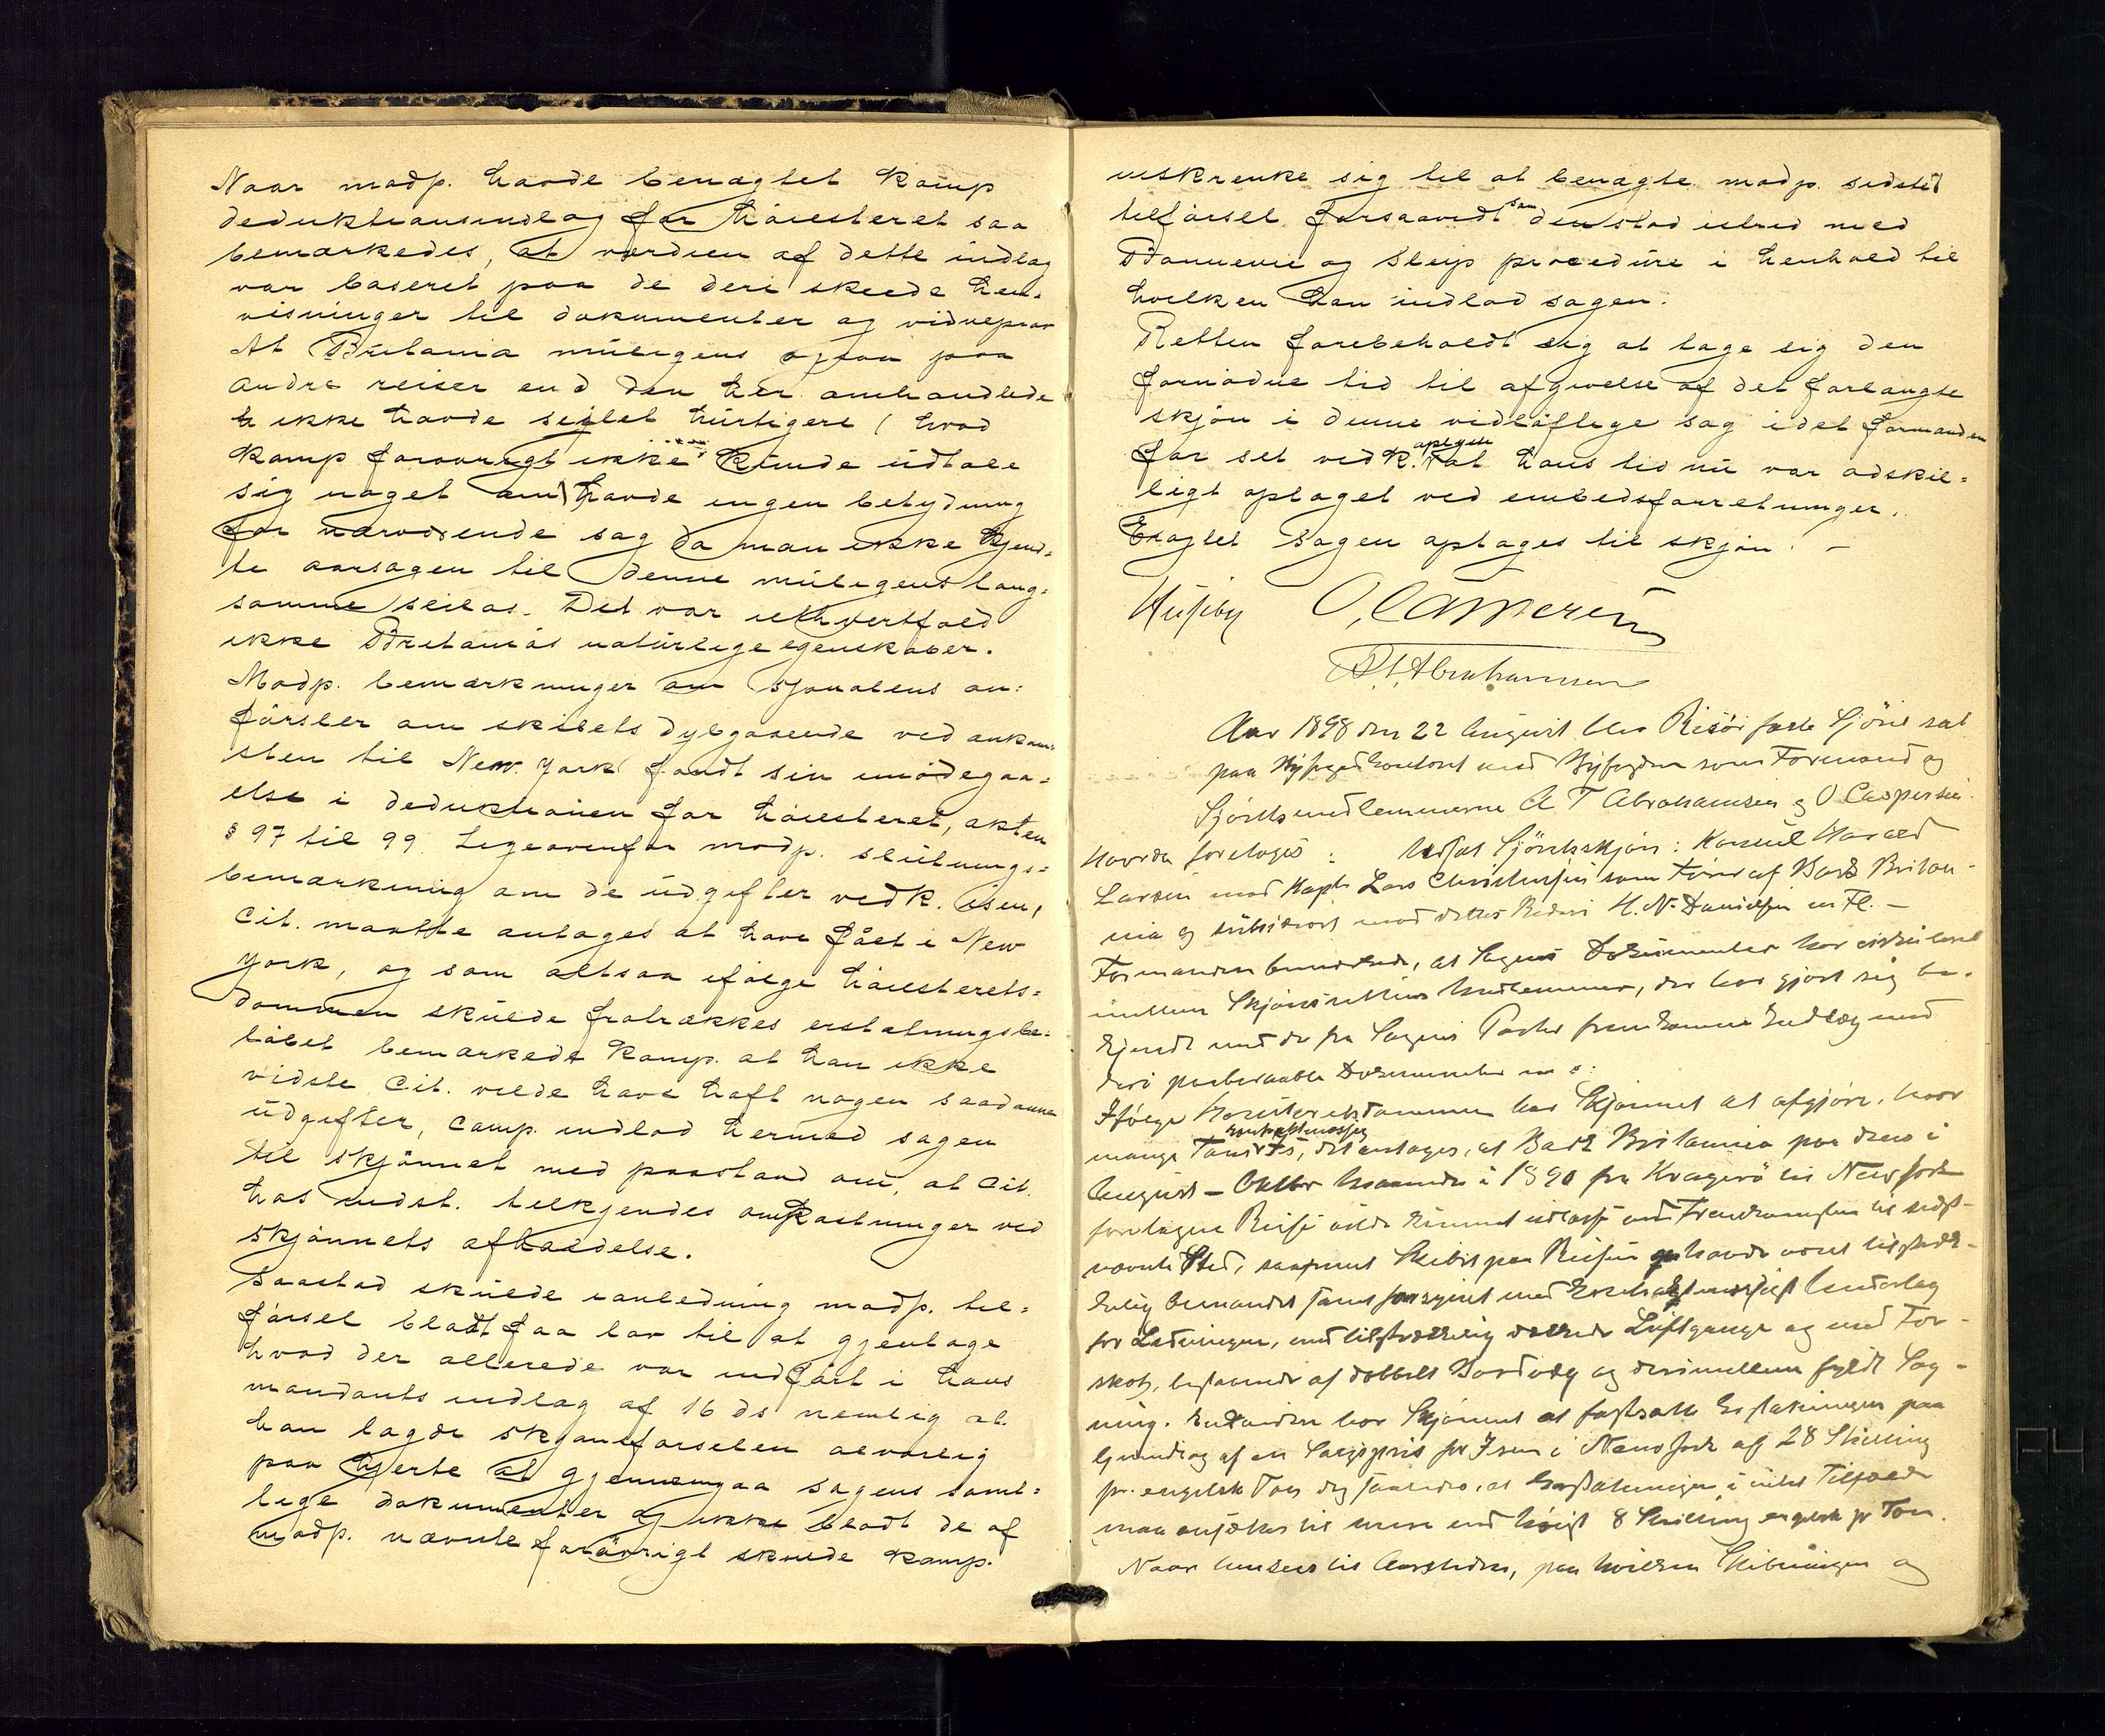 Naar modp. havde benægtet Kamp
deduktionsindlæg for høiesteret saa
bemærkedes, at værdien af dette indlæg
var baseret paa de deri skeede hen-
visninger til dokumenter og vidneprov
At Britania muligens ogsaa paa
andre reiser end den her omhandlede
ikke havde seglet hurtigere (hvad
Kamp forøvrigt ikke kunde udtale
sig noget om) havde ingen betydning
for nærværende sag da man ikke kjend-
te aarsagen til denne muligens lang-
somme seilas. Det var ialhvertfald
ikke Britanias naturlige egenskaber.
Modp. bemærkninger om Sjonalens an-
førsler om skibets dybgaaende ved ankom-
sten til New York fandt sin imødegaa-
else i deduktionen for høiesteret, akten
§ 97 til 99. Ligeoverfor modp. slutnings-
bemærkning om de udgifter vedk. isen,
Cit. maatte antages at have fået i New
York, og som altsaa ifølge høiesterets-
dommen skulde fratrækkes erstatningsbe-
løbet bemærkede Kamp. at han ikke
vidste Cit. vilde have haft nogen saadanne
udgifter, Camp. indlod hermed sagen
til skjønnet med paastand om, at Cit.
hos indst. tilkjendes omkostninger ved
skjønnets afholdelse.
Saastad skulde i anledning modp. til-
førsel blodt faa lov til at gjentage
hvad der allerede var indført i hans
mandants indlæg af 16 ds nemlig at
han lagde skjønsforselen alvorlig
paa hjerte at gjennemgaa sagens samt-
lige dokumenter og ikke blodt de af
modp. nævnte forøvrigt skulde Kamp.
inskrenke sig til at benægte modp. sidste
tilførsel forsaavidt som den stod istrid med
Dannevig og Sleips procedure i henhold til
hvilken han indlod sagen.
Retten forebeholdt sig at tage sig den
fornødne tid til afgivelse af det forlangte
skjøn i denne vidløftige sag idet formanden
for sit vedk. oplyste at hans tid nu var adskil-
ligt optaget ved embedsforretninger.
Eragtet Sagen optages til skjøn. –
Huseby O. Caspersen
A. T. Abrahamsen
Aar 1898 den 22 August blev Risør faste Sjøret sat
paa Byfogedkontoret med Byfogden som Formand og
Sjøretsmedlemmerne A T Abrahamsen og O Caspersen
Hvorda foretoges: Udsat Sjøretsskjøn: Konsul Harald
Larsen mod Kapt Lars Christensen som Fører af Bark Britan-
nia og subsidiært mod dettes Rederi H. N. Danielsen m Fl. –
Formanden bemærkede, at Sagens Dokumenter har cirkuleret
imellem Skjønsrettens Medlemmer, der har gjort sig be-
kjendt med de fra Sagens Parter fremkomne Indlæg med
deri paaberaabte Dokumenter m. v.
Ifølge Høiesteretsdommen har Skjønnet at afgjøre, hvor
mange Tons Is, det antages, at Bark Britannia paa dens i
August – Oktbr Maaneder i 1890 fra Kragerø til New York
foretagne Reise vilde kunnet udlosse ved Fremkomsten til sidst-
nævnte Sted, saafremt Skibet paa Reisen havde været tilstræk-
kelig bemandet samt forsynet med kontraktmæssigt Underlag
for Ladningen, med tilstrækkelig dækkede Luftgange og med For-
skot, bestaaende af dobbelt Bordvæg og derimellem fyldt Sag-
mug. Endvidere har Skjønnet at fastsætte Erstatningen paa
Grundlag af en Salgspris for Isen i New York af 28 Shilling
pr. engelsk Ton dog saaledes, at Erstatningen i intet Tilfælde
maa ansættes til mere end høist 8 Shilling engelsk pr Ton.
Naar henses til Aarstiden, paa hvilken Skibningen og